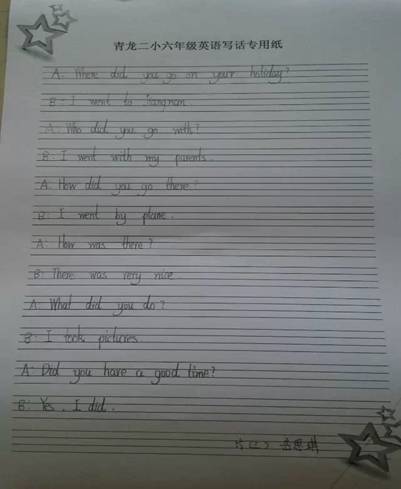 青龙二小六年级英语写话专用纸
A: Where did you go on your holiday?
B: I went to Jiangnan.
A: Who did you go with?
B: I went with my parents.
A: How did you go there?
B: I went by plane.
A: How was there?
B: There was very nice
A: What did you do?
B: I took pictures
A: Did you have a good time?
B: Yes, I did.